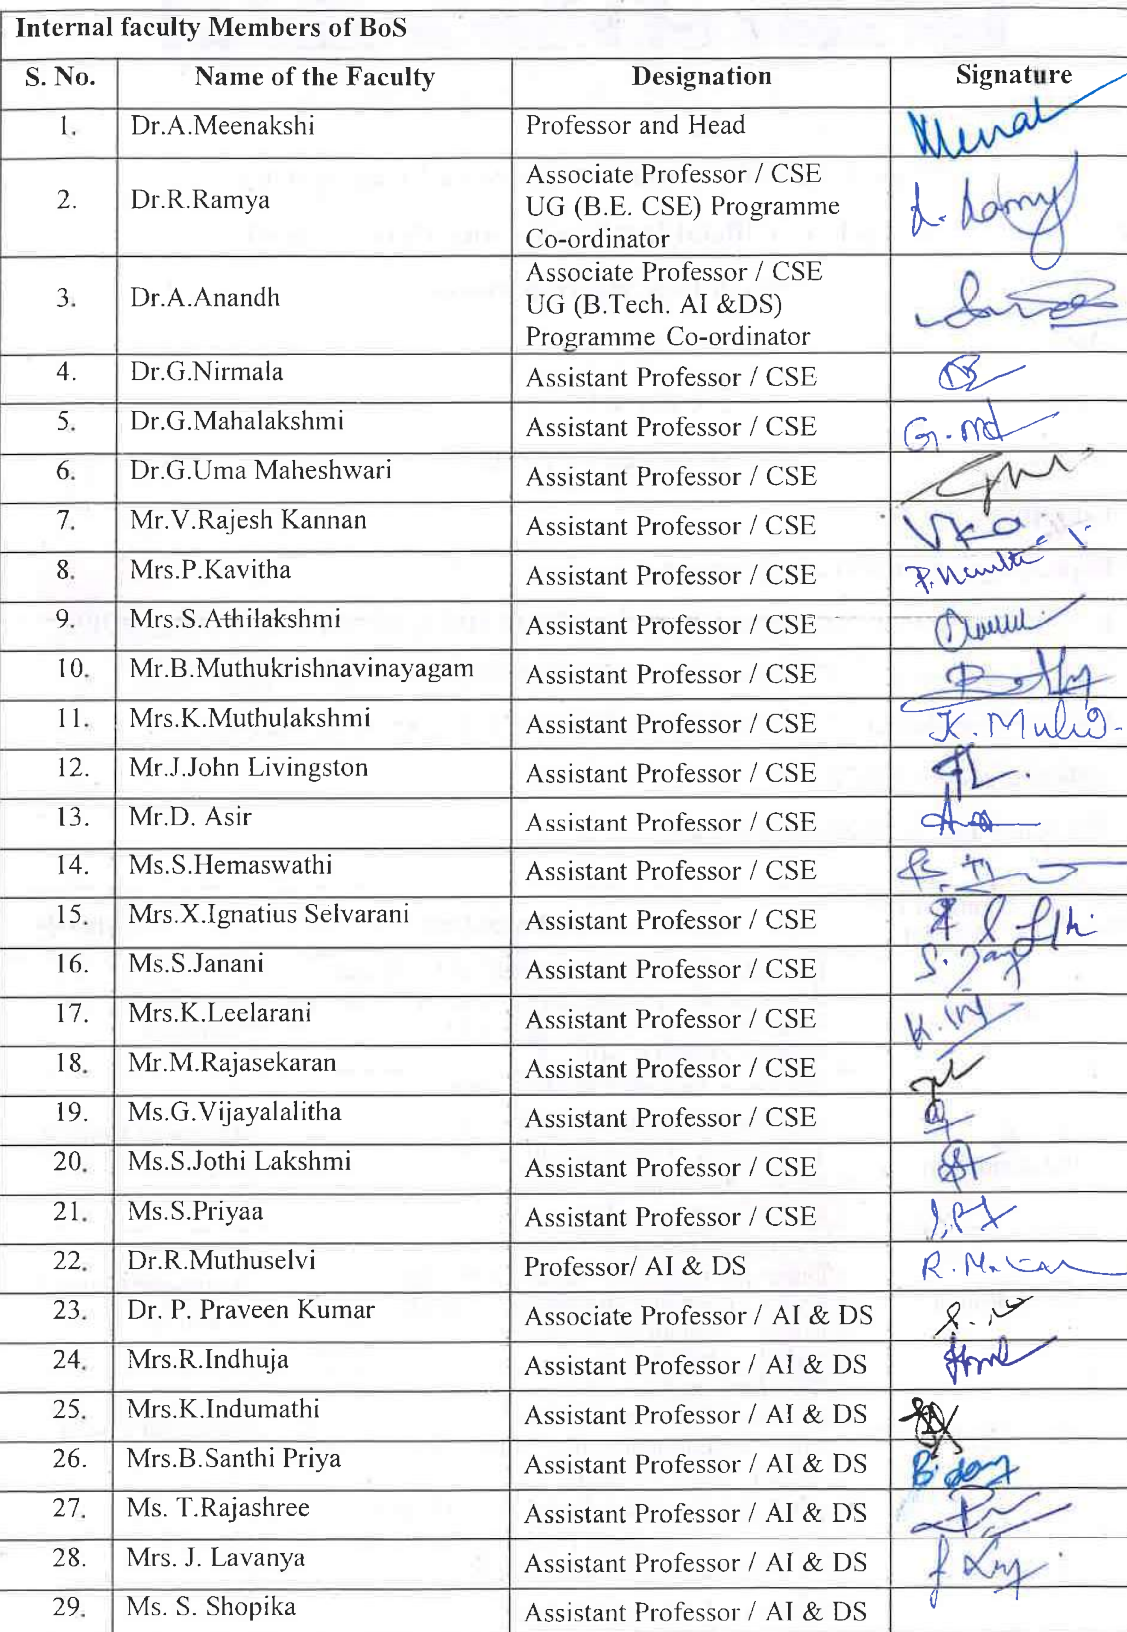 Internal faculty Members of BoS
S. No. Name of the Faculty Designation Signature
1. Dr.A.Meenakshi Professor and Head
2. Dr.R.Ramya Associate Professor / CSE
UG (B.E. CSE) Programme
Co-ordinator
3. Dr.A.Anandh Associate Professor / CSE
UG (B.Tech. AI &DS)
Programme Co-ordinator
4. Dr.G.Nirmala Assistant Professor / CSE
5. Dr.G.Mahalakshmi Assistant Professor / CSE
6. Dr.G.Uma Maheshwari Assistant Professor / CSE
7. Mr.V.Rajesh Kannan Assistant Professor / CSE
8. Mrs.P.Kavitha Assistant Professor / CSE
9. Mrs.S.Athilakshmi Assistant Professor / CSE
10. Mr.B.Muthukrishnavinayagam Assistant Professor / CSE
11. Mrs.K.Muthulakshmi Assistant Professor / CSE
12. Mr.J.John Livingston Assistant Professor / CSE
13. Mr.D. Asir Assistant Professor / CSE
14. Ms.S.Hemaswathi Assistant Professor / CSE
15. Mrs.X.Ignatius Selvarani Assistant Professor / CSE
16. Ms.S.Janani Assistant Professor / CSE
17. Mrs.K.Leelarani Assistant Professor / CSE
18. Mr.M.Rajasekaran Assistant Professor / CSE
19. Ms.G.Vijayalalitha Assistant Professor / CSE
20. Ms.S.Jothi Lakshmi Assistant Professor / CSE
21. Ms.S.Priyaa Assistant Professor / CSE
22. Dr.R.Muthuselvi Professor/ AI & DS
23. Dr. P. Praveen Kumar Associate Professor / AI & DS
24. Mrs.R.Indhuja Assistant Professor / AI & DS
25. Mrs.K.Indumathi Assistant Professor / AI & DS
26. Mrs.B.Santhi Priya Assistant Professor / AI & DS
27. Ms. T.Rajashree Assistant Professor / AI & DS
28. Mrs. J. Lavanya Assistant Professor / AI & DS
29. Ms. S. Shopika Assistant Professor / AI & DS